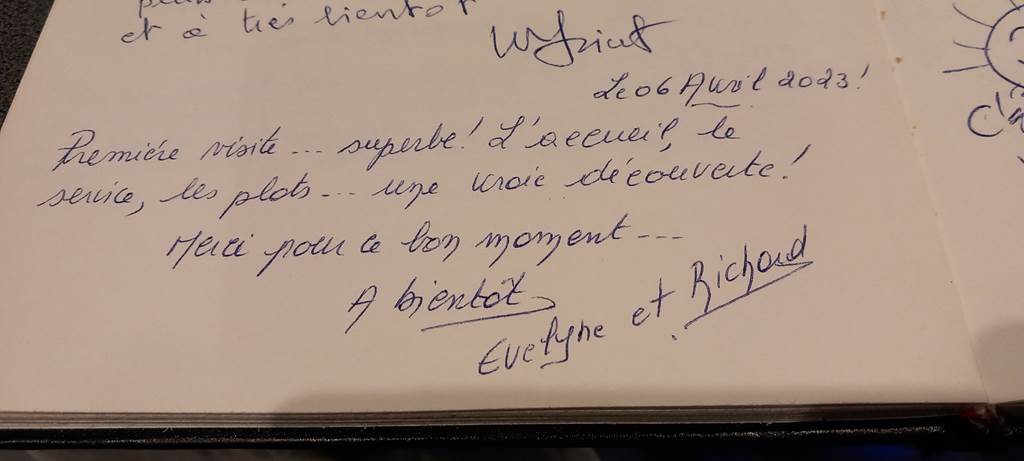 et à très bientôt
Le 06 Avril 2023!
Première visite... superbe! L'accueil, le
service, les plats... une vraie découverte!
Merci pour ce bon moment...
A bientôt
Evelyne et Richard